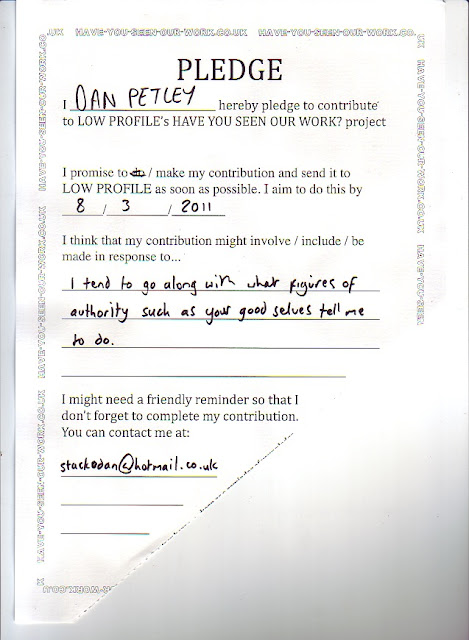 .UK HAVE-YOU-SEEN-OUR-WORK.CO.UK HAVE-YOU-SEEN-OUR-WORK.CO.
PLEDGE
I DAN PETLEY hereby pledge to contribute
to LOW PROFILE's HAVE YOU SEEN OUR WORK? project
I promise to do / make my contribution and send it to
LOW PROFILE as soon as possible. I aim to do this by
8 / 3 / 2011
I think that my contribution might involve / include / be
made in response to...
I tend to go along with what figures of
authority such as your good selves tell me
to do.
I might need a friendly reminder so that I
don't forget to complete my contribution.
You can contact me at:
stackodan@hotmail.co.uk
UK HAVE-YOU-SEEN-OUR-WORK.CO.UK HAVE-YOU-SEEN-OUR-WORK.CO.UK HAVE-YOU-SEEN-OUR-WORK.CO
UK HAVE-YOU-SEEN-OUR-WORK.CO.UK HAVE-YOU-SEEN